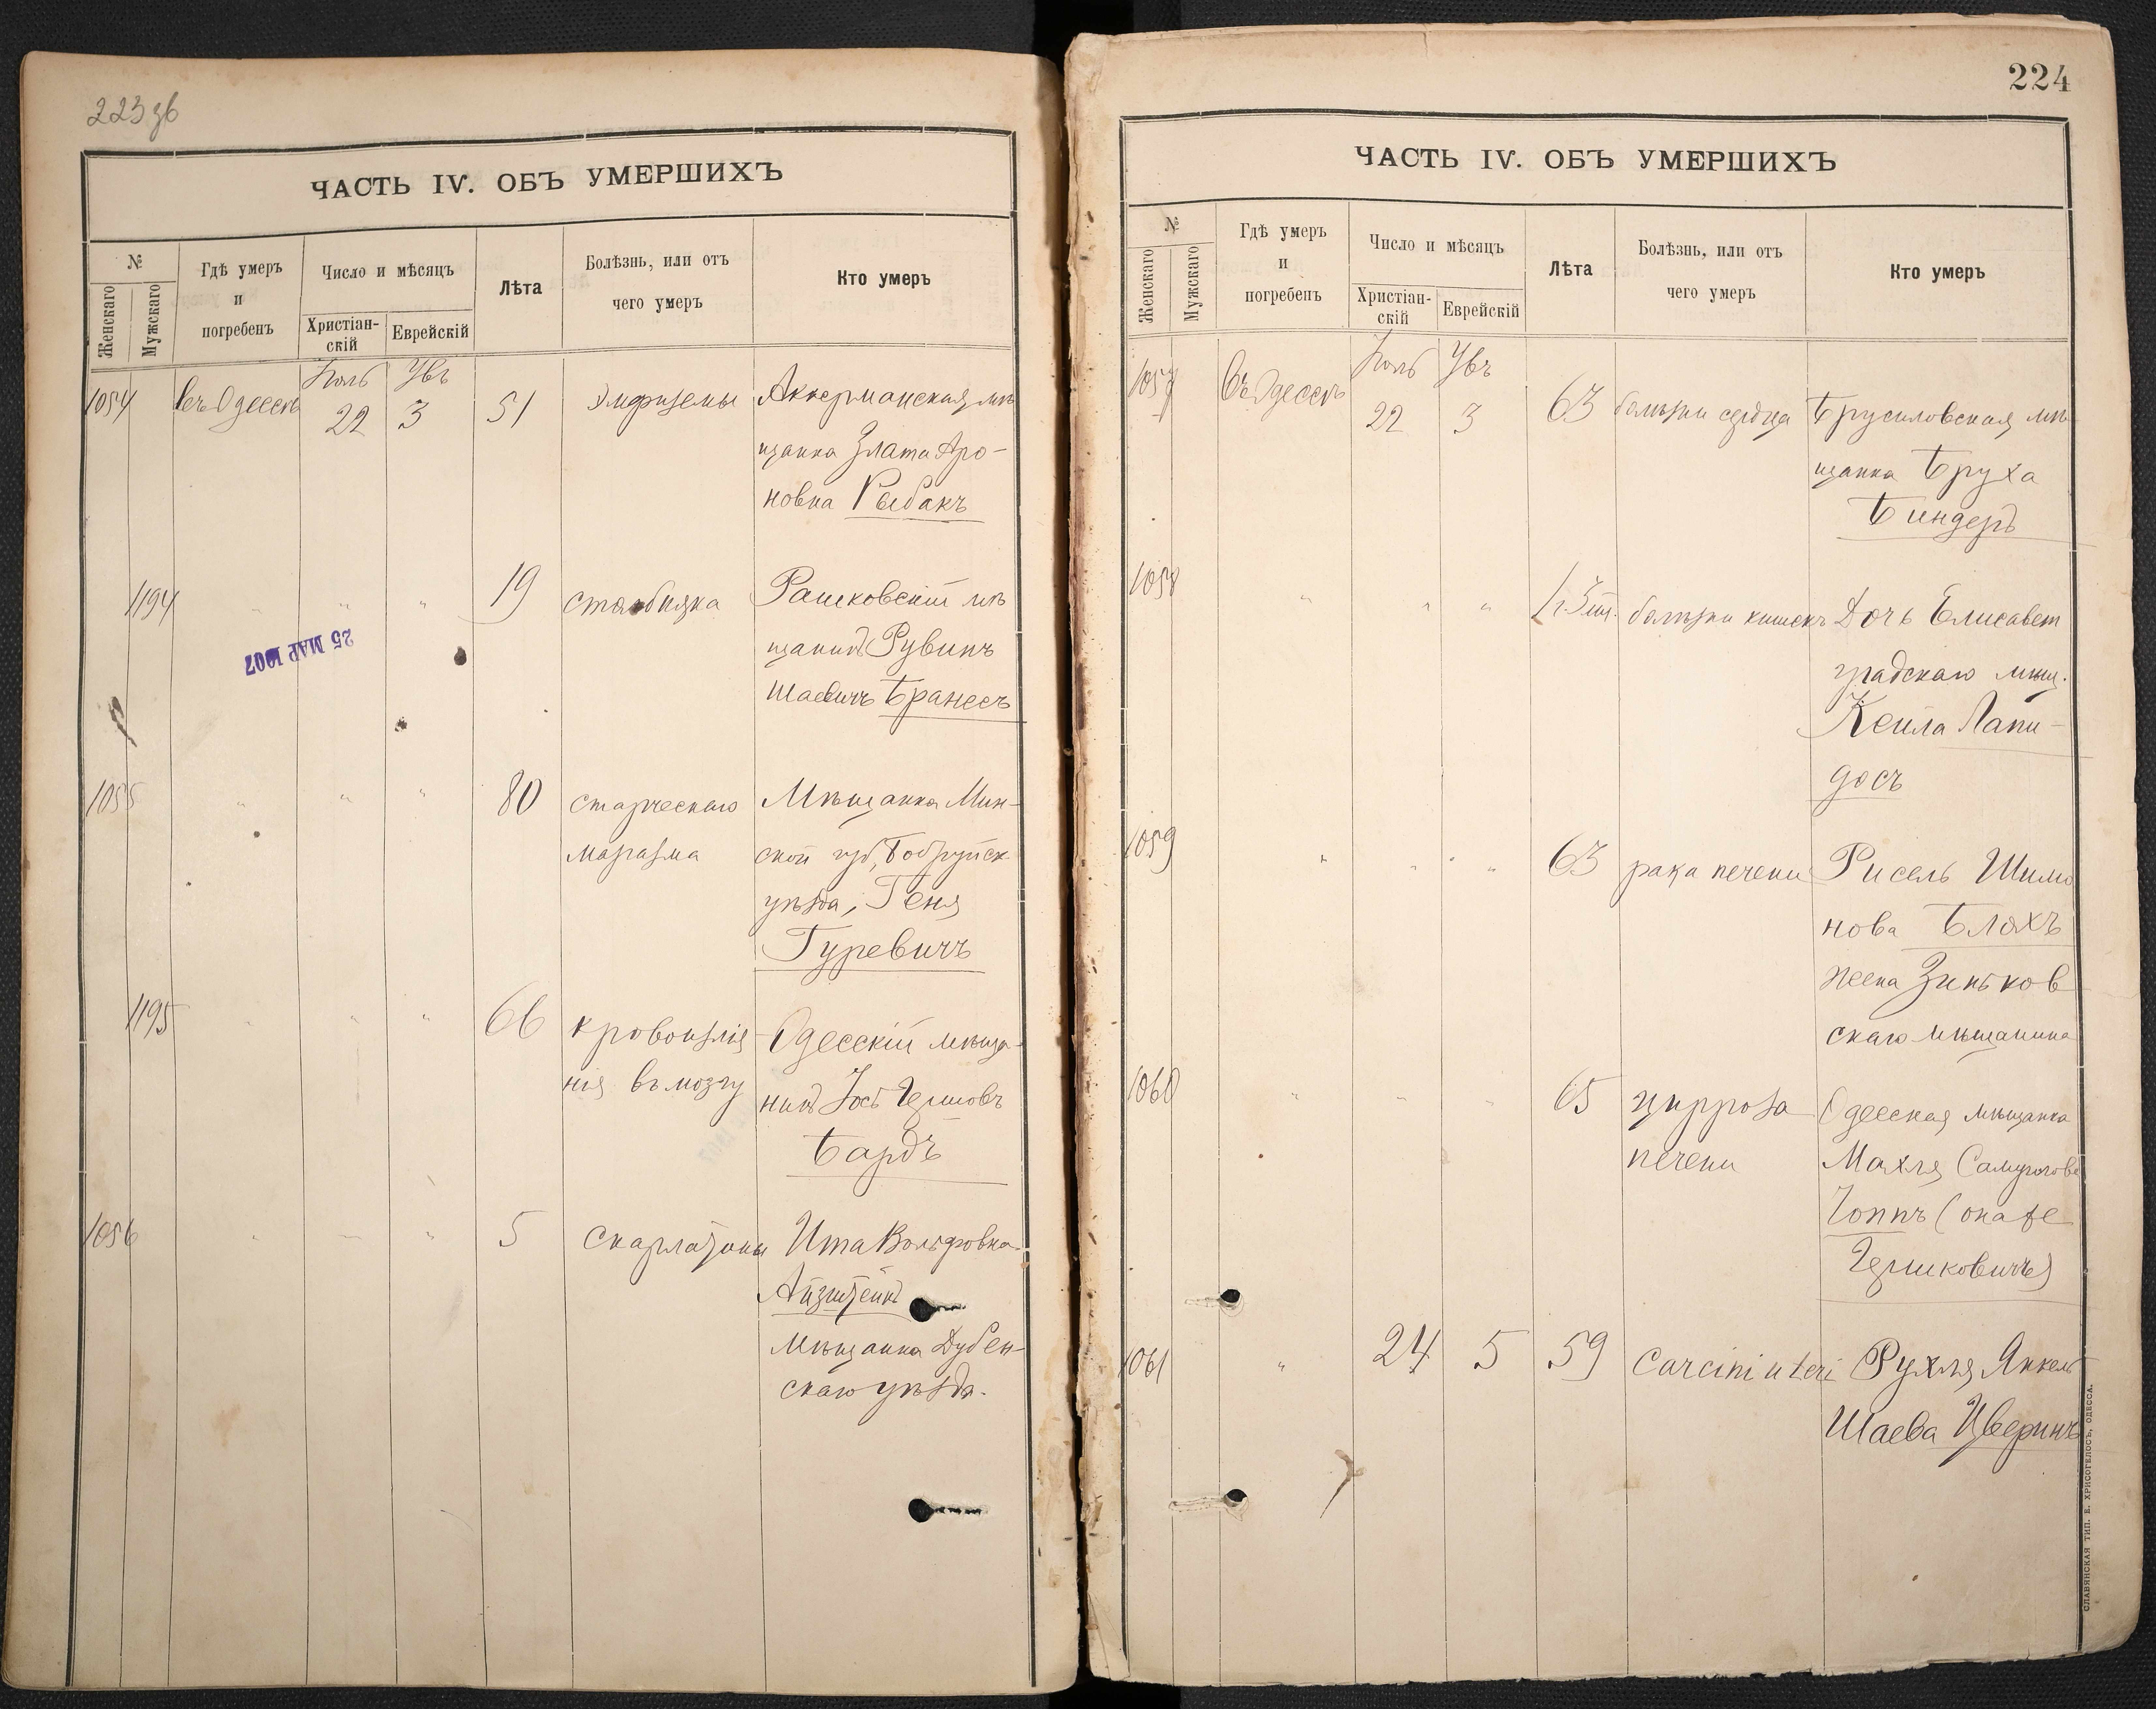 223 зв
ЧАСТЬ IV. ОБЪ УМЕРШИХЪ
№
Женскаго
Мужскаго
Гдѣ умеръ
и
погребенъ
Число и мѣсяцъ
Христіан-
скій
Еврейскій
Лѣта
Болѣзнь, или отъ
чего умеръ
Кто умеръ
Іюль
1054 въ Одессѣ 22 3 51 Эмфиземы Аккерманская мѣ
щанка Злата Аро-
новна Рыбакъ
1194 " " " 19 столбняка Рашковскій мѣ
щанинъ Рувинъ
Шаевичъ Брансъ
25 МАР 1907
1055 " " " 80 старческаго Мѣщанка Мин-
маразма ской губ, Бобруйск
уѣзда, Геня
Гуревичъ
1195 " " " 66 кровоизлія- Одесскій мѣща-
нія въ мозгу нинъ Іосъ Гершовъ
Бардъ
1056 " " " 5 Скарлатины Ита Вольфовна
Айзштейнъ
Мѣщанка Дубен-
скаго уѣзда.
224
ЧАСТЬ IV. ОБЪ УМЕРШИХЪ
№
Женскаго
Мужскаго
Гдѣ умеръ
и
погребенъ
Число и мѣсяцъ
Христіан-
скій
Еврейскій
Лѣта
Болѣзнь, или отъ
чего умеръ
Кто умеръ
Іюль
1057 Въ Одессѣ 22 3 63 болѣзни сердца Брусиловская мѣ
щанка Бруха
Биндеръ
1058 " " " 1 г. 3 м. болѣзни кишекъ Дочь Елисавет
градскаго мѣщ.
Кейла Лапи-
досъ
1059 " " " 63 рака печени Рисель Шимо
нова Бляхъ
жена Зиньков
скаго мѣщанина
1060 " " " 65 цирроза Одесская мѣщанка
печени Махля Самуилова
Гоппъ (она же
Гершковичъ)
1061 " 24 5 59 Carcini uteri Рухля Янкель
Шаева Цверинъ
СЛАВЯНСКАЯ ТИП. Е. ХРИСОГЕЛОСЪ, ОДЕССА.